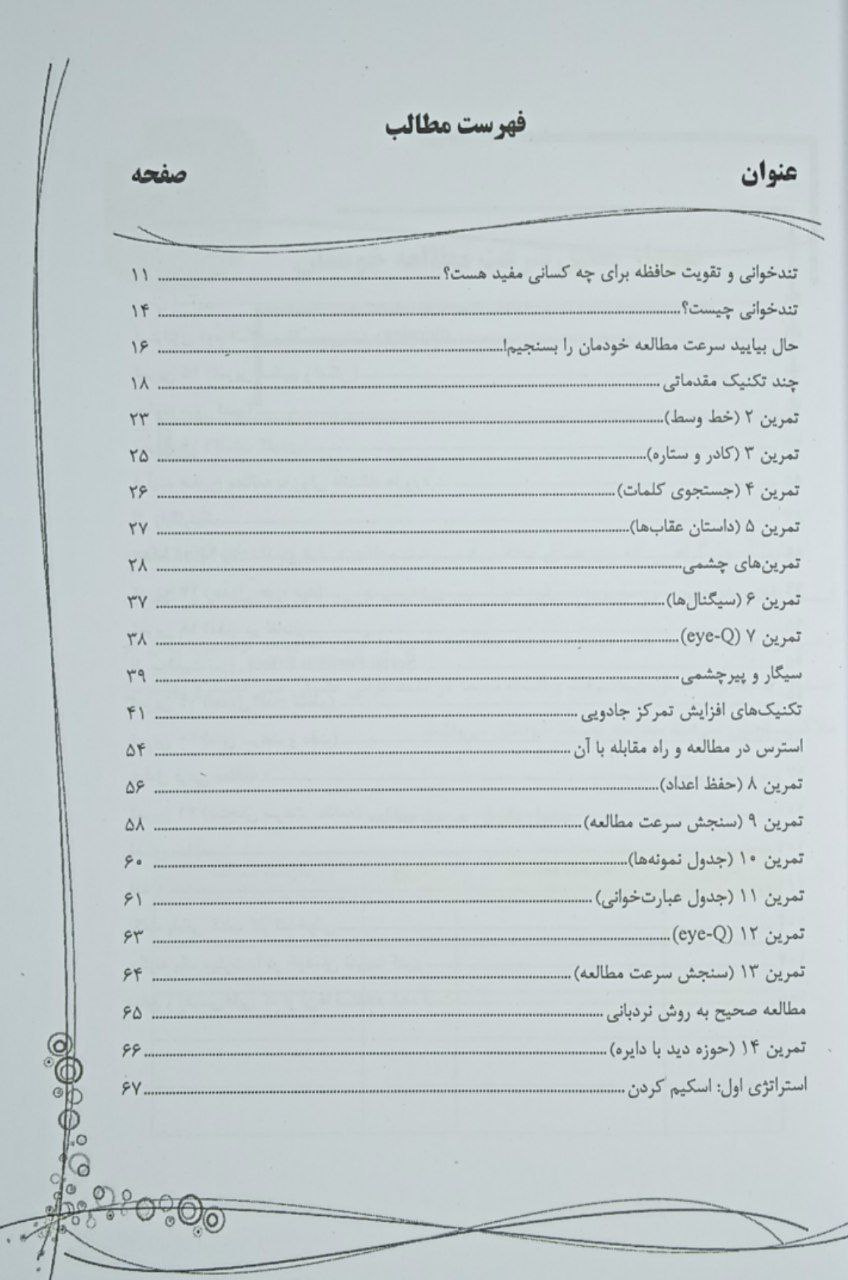 فهرست مطالب
عنوان صفحه
تندخوانی و تقویت حافظه برای چه کسانی مفید هست؟ ........ ۱۱
تندخوانی چیست؟ ........ ۱۴
حال بیایید سرعت مطالعه خودمان را بسنجیم! ........ ۱۶
چند تکنیک مقدماتی ........ ۱۸
تمرین ۲ (خط وسط) ........ ۲۳
تمرین ۳ (کادر و ستاره) ........ ۲۵
تمرین ۴ (جستجوی کلمات) ........ ۲۶
تمرین ۵ (داستان عقاب‌ها) ........ ۲۷
تمرین‌های چشمی ........ ۲۸
تمرین ۶ (سیگنال‌ها) ........ ۳۷
تمرین ۷ (eye-Q) ........ ۳۸
سیگار و پیرچشمی ........ ۳۹
تکنیک‌های افزایش تمرکز جادویی ........ ۴۱
استرس در مطالعه و راه مقابله با آن ........ ۵۴
تمرین ۸ (حفظ اعداد) ........ ۵۶
تمرین ۹ (سنجش سرعت مطالعه) ........ ۵۸
تمرین ۱۰ (جدول نمونه‌ها) ........ ۶۰
تمرین ۱۱ (جدول عبارت‌خوانی) ........ ۶۱
تمرین ۱۲ (eye-Q) ........ ۶۳
تمرین ۱۳ (سنجش سرعت مطالعه) ........ ۶۴
مطالعه صحیح به روش نردبانی ........ ۶۵
تمرین ۱۴ (حوزه دید با دایره) ........ ۶۶
استراتژی اول: اسکیم کردن ........ ۶۷